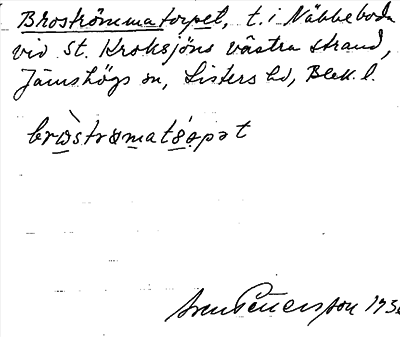 Broströmmatorpet, t. i Näbbeboda
vid St. Kroksjöns västra strand,
Jämshögs sn, Listers hd, Blek. l.
bròstrømatǿ̱ꝛpət
Sven Petersson 193